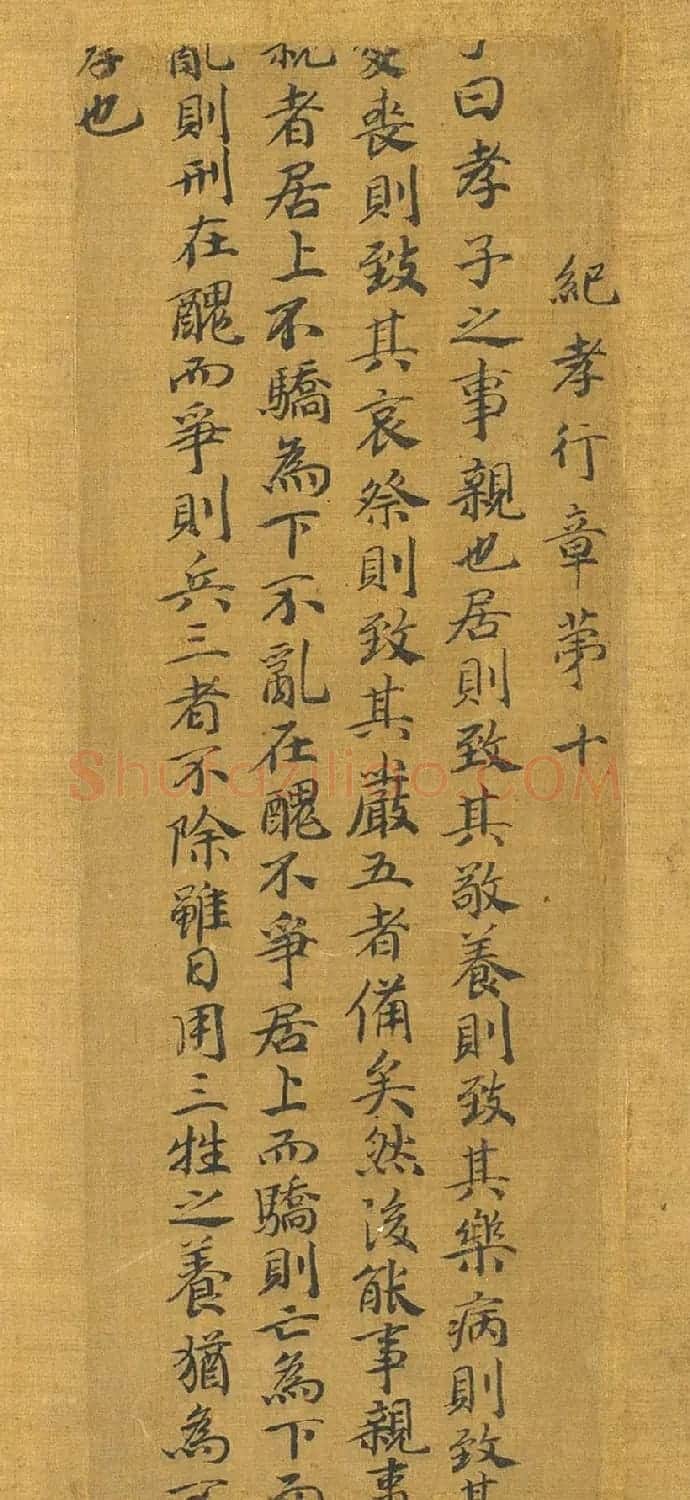 紀孝行章第十
子曰孝子之事親也居則致其敬養則致其樂病則致其
憂喪則致其哀祭則致其嚴五者備矣然後能事親事
親者居上不驕為下不亂在醜不爭居上而驕則亡為下而
亂則刑在醜而爭則兵三者不除雖日用三牲之養猶為不
孝也
Shufaziliao.COM